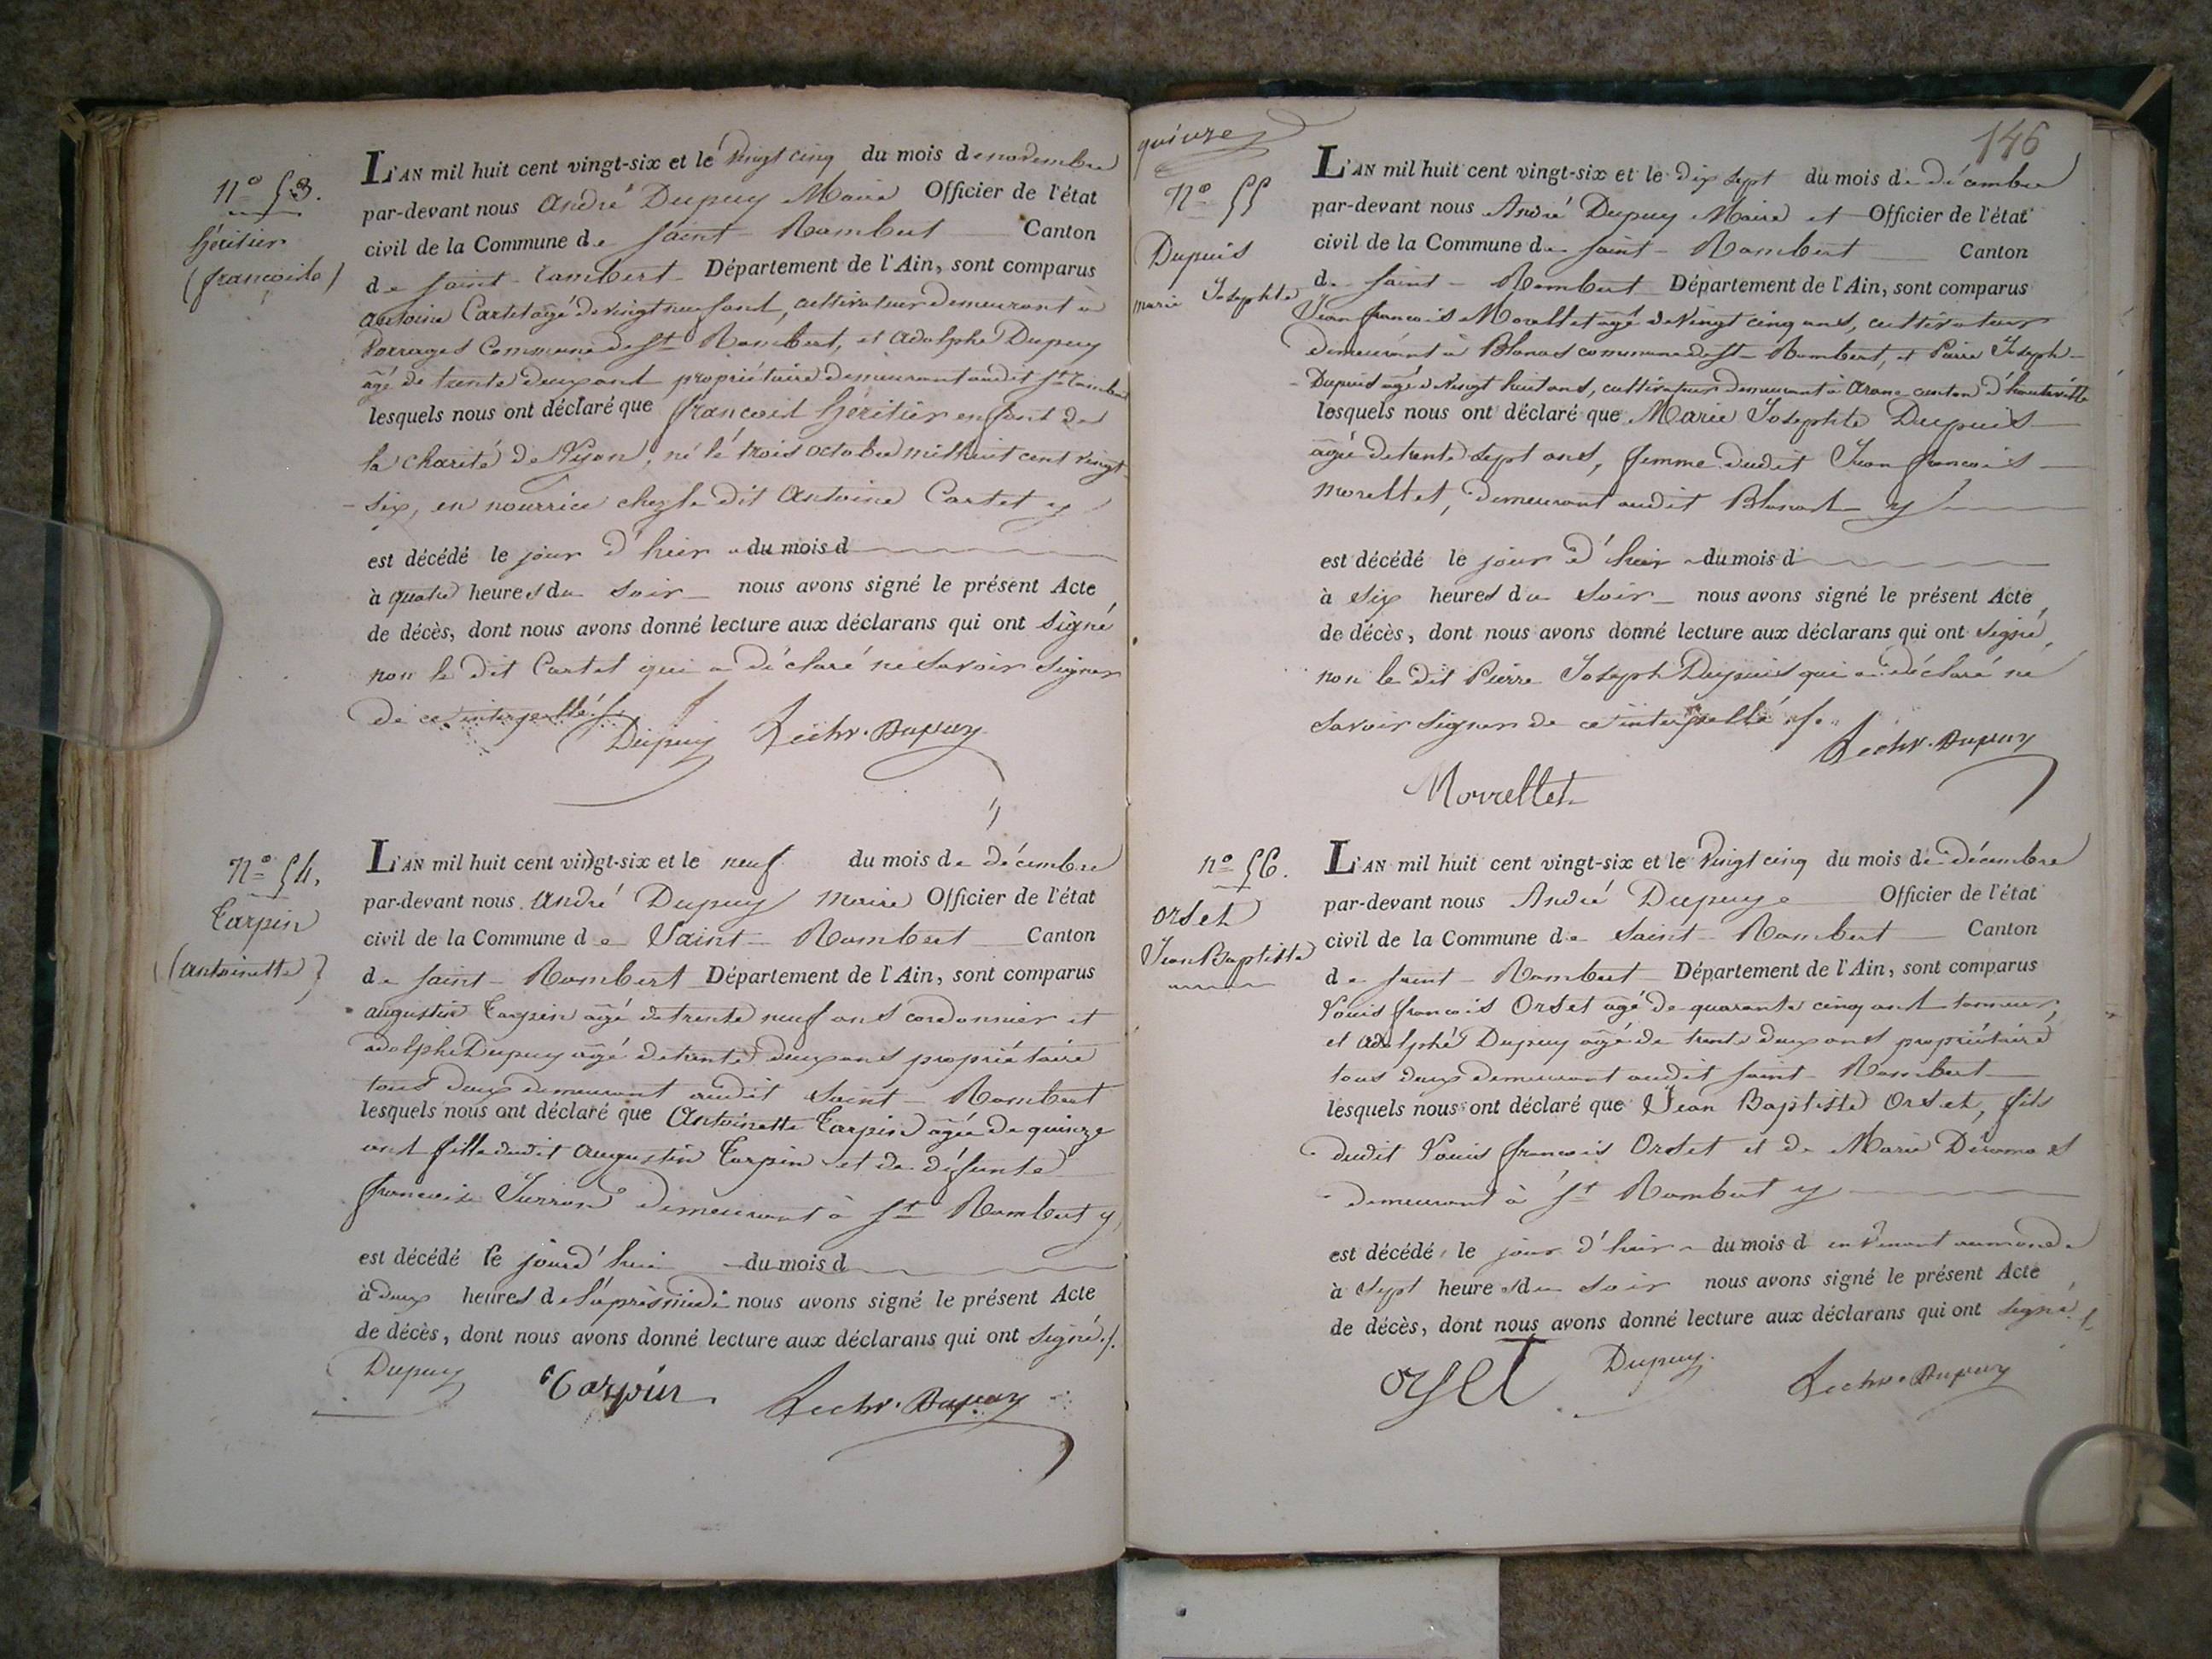 n° 53.
héritier
(françois)
L'AN mil huit cent vingt-six et le vingt cinq du mois de novembre
par-devant nous André Dupuy Maire Officier de l'état
civil de la Commune de Saint-Rambert Canton
de Saint-Rambert Département de l'Ain, sont comparus
antoine Cartet âgé de vingt neuf ans, cultivateur demeurant à
Commune de St Rambert, et adolphe Dupuy
âgé de trente deux ans propriétaire demeurant audit St Rambert
lesquels nous ont déclaré que françois héritier enfant de
la charité de Lyon, né le trois octobre mil huit cent vingt-
-six, en nourrice chez le dit Antoine Cartet y
est décédé le jour d'hier du mois d
à quatre heures du soir nous avons signé le présent Acte
de décès, dont nous avons donné lecture aux déclarans qui ont signé
non le dit Cartet qui a déclaré ne savoir signer
de ce interpellé.
Dupuy Dupuy
n° 54.
Tarpin
(antoinette)
L'AN mil huit cent vingt-six et le neuf du mois de décembre
par-devant nous André Dupuy maire Officier de l'état
civil de la Commune de Saint-Rambert Canton
de Saint-Rambert Département de l'Ain, sont comparus
augustin Tarpin âgé de trente neuf ans cordonnier et
adolphe Dupuy âgé de trente deux ans propriétaire
tous deux demeurant audit Saint-Rambert
lesquels nous ont déclaré que Antoinette Tarpin âgée de quinze
ans fille dudit augustin Tarpin et de défunte
françoise demeurant à St Rambert y
est décédé le jour d'hui du mois d
à deux heures de l'après midi nous avons signé le présent Acte
de décès, dont nous avons donné lecture aux déclarans qui ont signé ./.
Dupuy Tarpin Dupuy
146
n° 55
Dupuis
marie Josephte
L'AN mil huit cent vingt-six et le dix sept du mois de décembre
par-devant nous André Dupuy Maire et Officier de l'état
civil de la Commune de Saint-Rambert Canton
de Saint-Rambert Département de l'Ain, sont comparus
Jean françois Morellet âgé de vingt cinq ans, cultivateur
demeurant à Blanas commune de St-Rambert, et Pierre Joseph
Dupuis âgé de vingt huit ans, cultivateur demeurant à Arane canton d'hauteville
lesquels nous ont déclaré que Marie Josephte Dupuis
âgée de trente sept ans, femme dudit Jean françois
morellet, demeurant audit Blanas y
est décédé le jour d'hier du mois d
à six heures du soir nous avons signé le présent Acte
de décès, dont nous avons donné lecture aux déclarans qui ont signé,
non le dit Pierre Joseph Dupuis qui a déclaré ne
savoir signer de ce interpellé ./.
Dupuy
Morrellet
n° 56.
orset
Jean Baptiste
L'AN mil huit cent vingt-six et le vingt cinq du mois de décembre
par-devant nous André Dupuy Officier de l'état
civil de la Commune de Saint-Rambert Canton
de Saint-Rambert Département de l'Ain, sont comparus
Louis françois Orset âgé de quarante cinq ans tanneur,
et Adolphe Dupuy âgé de trente deux ans propriétaire
tous deux demeurant audit Saint-Rambert
lesquels nous ont déclaré que Jean Baptiste Orset, fils
dudit Louis françois Orset et de Marie
demeurant à St Rambert y
est décédé le jour d'hier du mois d en venant au monde
à sept heures du soir nous avons signé le présent Acte
de décès, dont nous avons donné lecture aux déclarans qui ont signé ./.
orset Dupuy Dupuy